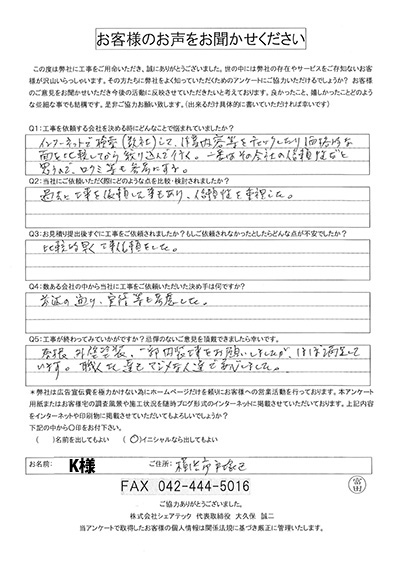 お客様のお声をお聞かせください
この度は弊社に工事をご用命いただき、誠にありがとうございました。世の中には弊社の存在やサービスをご存知ないお客
様が沢山いらっしゃいます。その方たちに弊社をよく知っていただくためのアンケートにご協力いただけるでしょうか？ お客様
のご意見をお聞かせいただき今後の活動に反映させていただきたいと考えております。良かったこと、嬉しかったことどのよう
な些細な事でも結構です。是非ご協力お願い致します。（出来るだけ具体的に書いていただければ幸いです）
Q1：工事を依頼する会社を決める時にどんなことで悩まれていましたか？
インターネットで検索（数社）して、内容等をチェックしたり価格的な
面を比較してから絞り込んで行く。一番はその会社の信頼性だと
思うので、口コミ等も参考にする。
Q2：当社にご依頼いただく際にどのような点を比較・検討されましたか？
過去に工事を依頼した事もあり、信頼性を重視した。
Q3：お見積り提出後すぐに工事をご依頼されましたか？もしご依頼されなかったとしたらどんな点が不安でしたか？
比較的早く工事依頼をした。
Q4：数ある会社の中から当社に工事をご依頼いただいた決め手は何ですか？
前述の通り、実績等も考慮した。
Q5：工事が終わってみていかがですか？忌憚のないご意見を頂戴できましたら幸いです。
屋根、外壁塗装、一部内装工事をお願いしましたが、ほぼ満足して
います。職人さん達もマジメな人達でありました。
＊弊社は広告宣伝費を極力かけない為にホームページだけを頼りにお客様への営業活動を行っております。本アンケート
用紙またはお客様宅の調査風景や施工状況を随時ブログ形式のインターネットに掲載させていただいております。上記内容
をインターネットや印刷物に掲載させていただいてもよろしいでしょうか？
下記の中から〇印をお付け下さい。
（ ）名前を出してもよい （〇）イニシャルなら出してもよい
お名前： K様 ご住所： 横浜市戸塚区
FAX 042-444-5016
富田
ご協力ありがとうございました。
株式会社シェアテック 代表取締役 大久保 誠二
当アンケートで取得したお客様の個人情報は関係法規に基づき厳正に管理いたします。